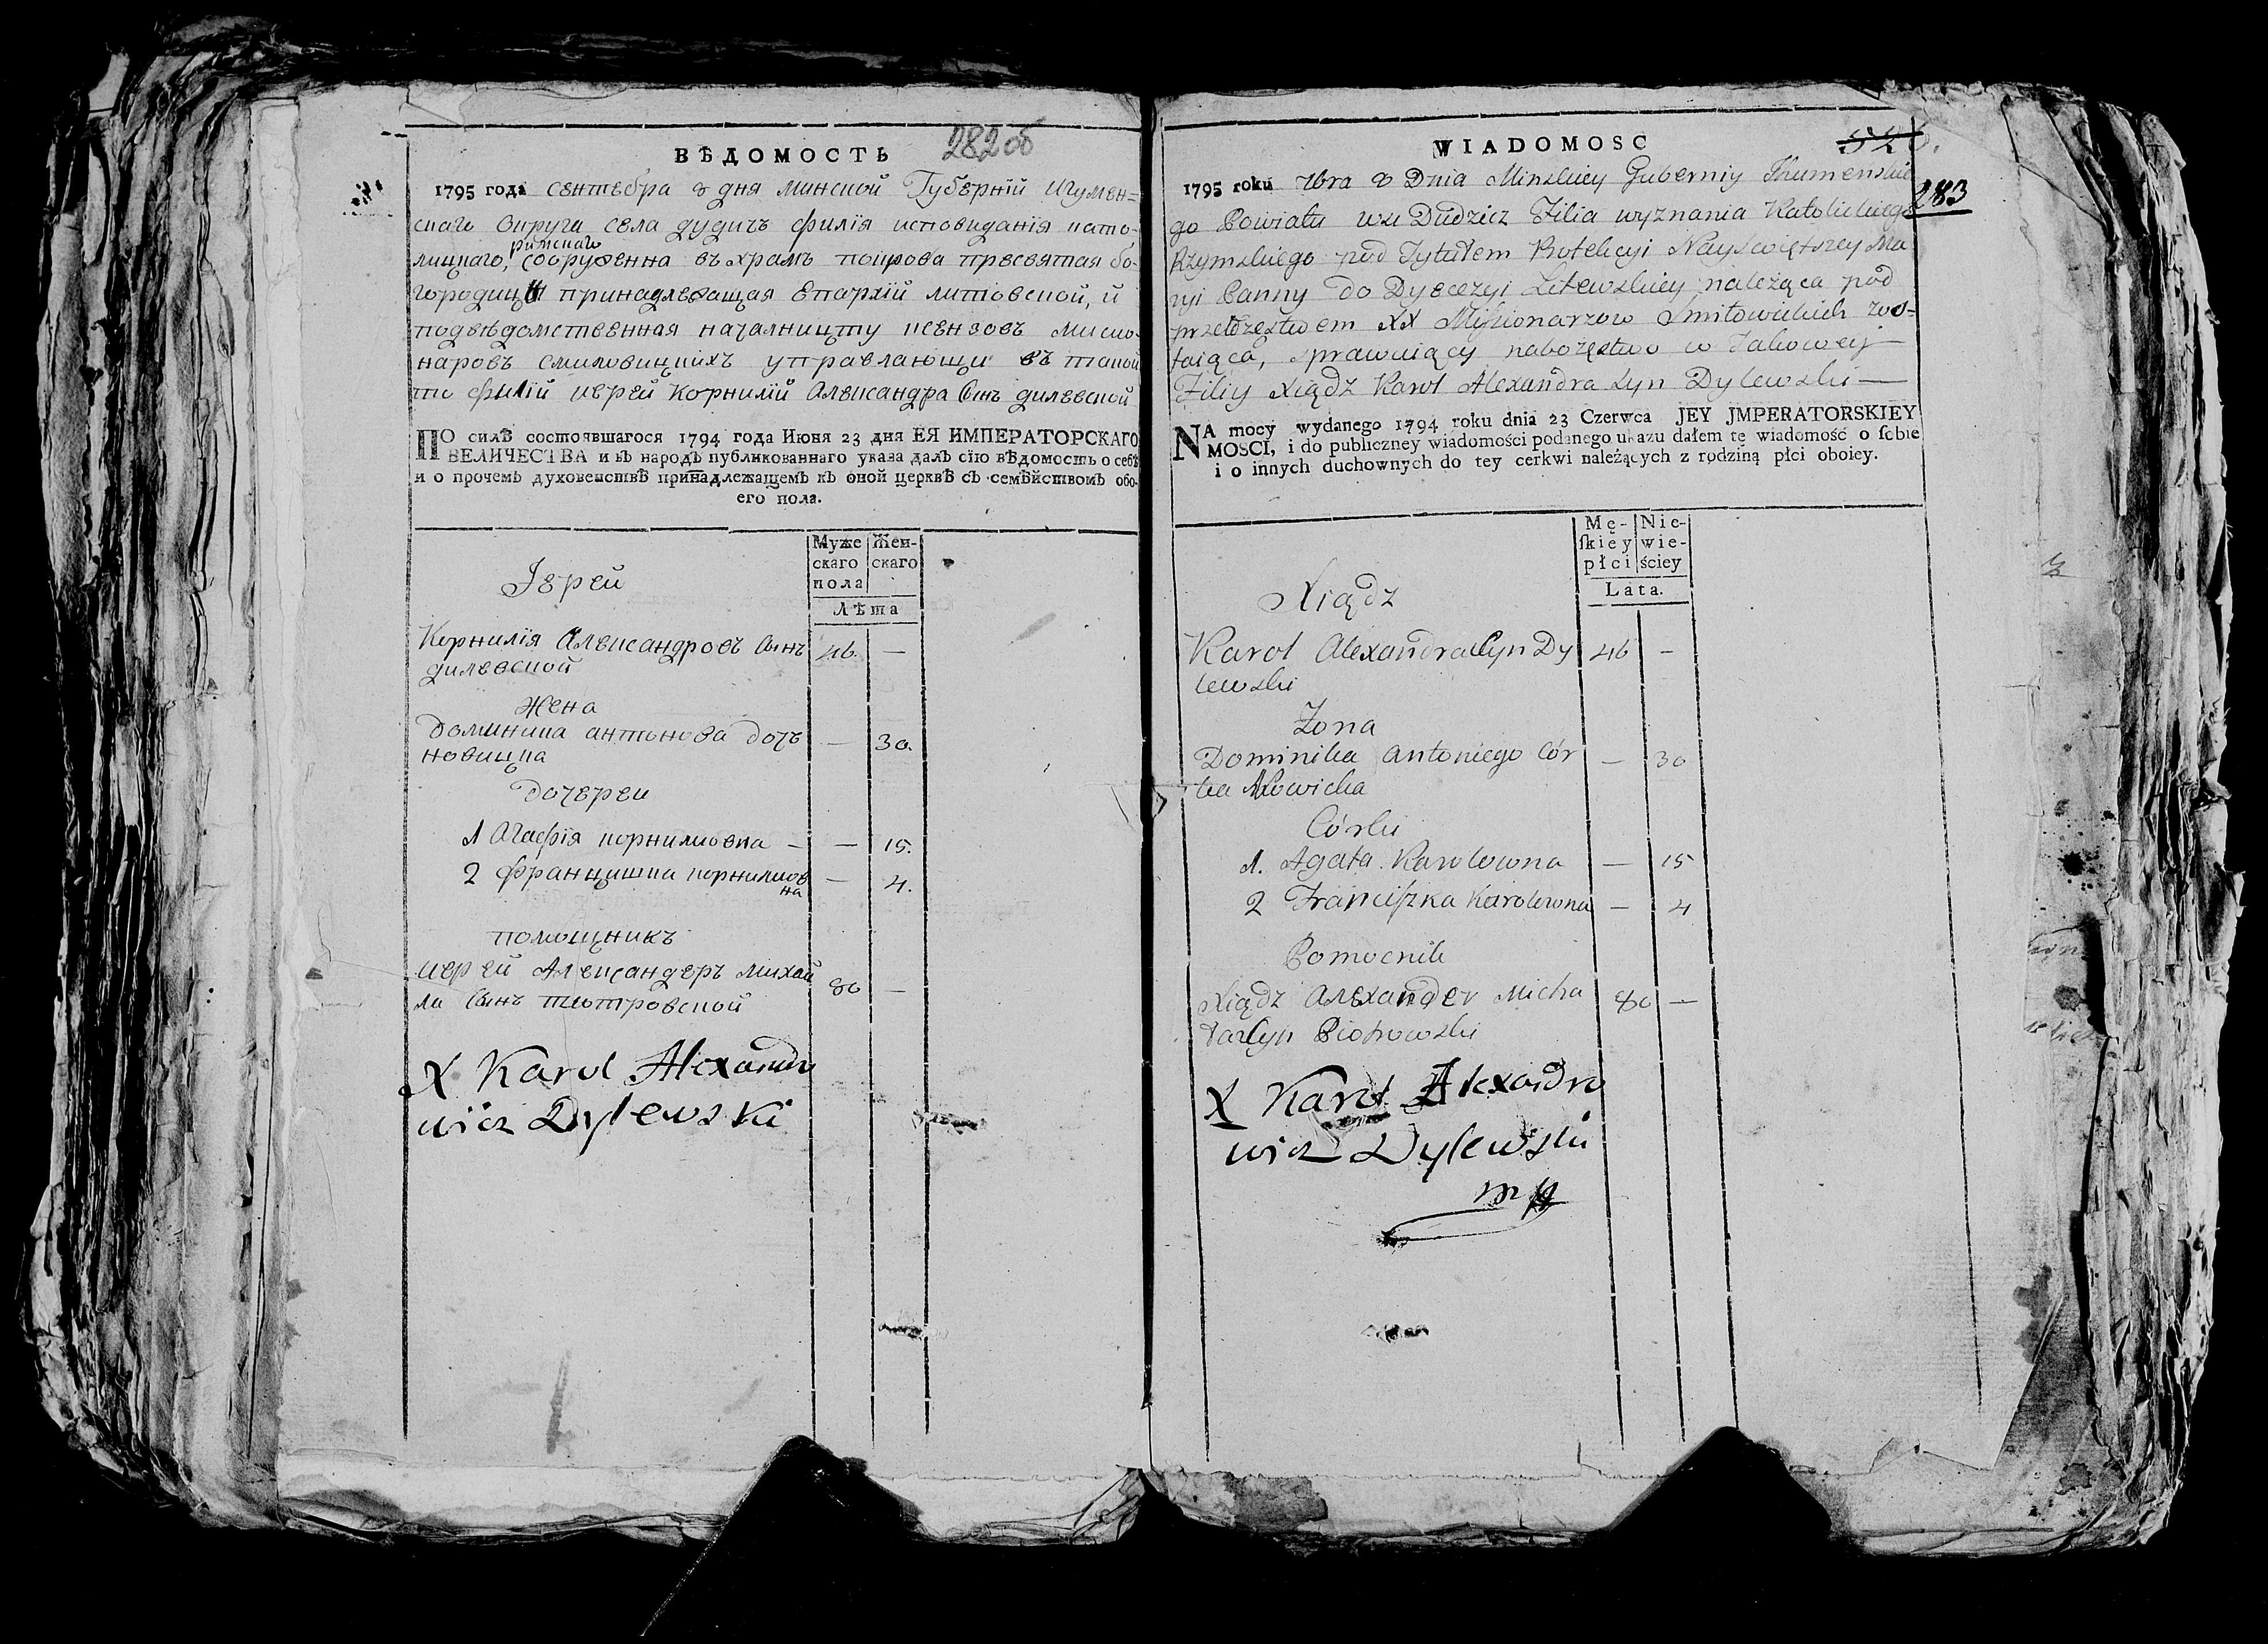 ВѢДОМОСТЬ
282об
1795 года сентебра 8 дня минской Губерніи игумен=
скаго округа села дудичъ филія исповиданія като-
римскаго
лицкаго, сооруженна въ храмъ покрова пресвятая бо-
городицы принадлежащая Епархій литовской, и
подвѣдомственная началництту ксензовъ мисио-
наровъ смиловицкихъ управлающи въ такой
то филій иерей Корнилій Александра сынъ дилевской
ПО силѣ состоявшагося 1794 года Июня 23 дня ЕЯ ИМПЕРАТОРСКАГО
ВЕЛИЧЕСТВА и въ народъ публикованнаго указа далъ сїю вѣдомость о себѣ
и о прочемъ духовенствѣ принадлежащемъ къ оной церквѣ съ семѣйствомъ обо-
его пола.
Муже Жен-
скаго скаго
пола
Лѣта
Іерей
Корнилія Александровъ сынъ 46. —
дилевской
Жена
Доминика антонова дочъ — 30.
новицка
Дочереи
1 Агафія корнилиовна — — 15.
2 францишка корнилиов — 4.
на
помощникъ
иерей Александеръ михай 80 —
ла сынъ пиотровской
X Karol Alexandro
wicz Dylewski
WIADOMOSC
283
1795 roku 7bra 8 Dnia Minskiey Guberniy Ihumenskie
go Powiatu wsi Dudzicz Filia wyznania Katolickiego
Rzymskiego pod Tytułem Protekcyi Nayświętszey Ma
ryi Panny do Dyecezyi Litewskiey należąca pod
przełożęstwem XX Missionarzow Smiłowickich zos-
taiąca, sprawuiący nabożęstwo w Takowey —
Filiy Xiądz Karol Alexandra syn Dylewski —
NA mocy wydanego 1794 roku dnia 23 Czerwca JEY JMPERATORSKIEY
MOSCI, i do publiczney wiadomości podanego ukazu dałem tę wiadomość o sobie
i o innych duchownych do tey cerkwi należących z rodziną płci oboiey.
Mę- Nie-
skiey wie-
płci ściey
Lata.
Xiądz
Karol Alexandra Syn Dy 46 —
lewski
Żona
Dominika Antoniego Cór — 30
ka Nowicka
Córki
1. Agata Karolowna — 15
2 Franciszka Karolowna — 4
Pomocnik
Xiądz Alexander Micha 80 —
ła Syn Piotrowski
X Karol Alexandro
wicz Dylewski
mp